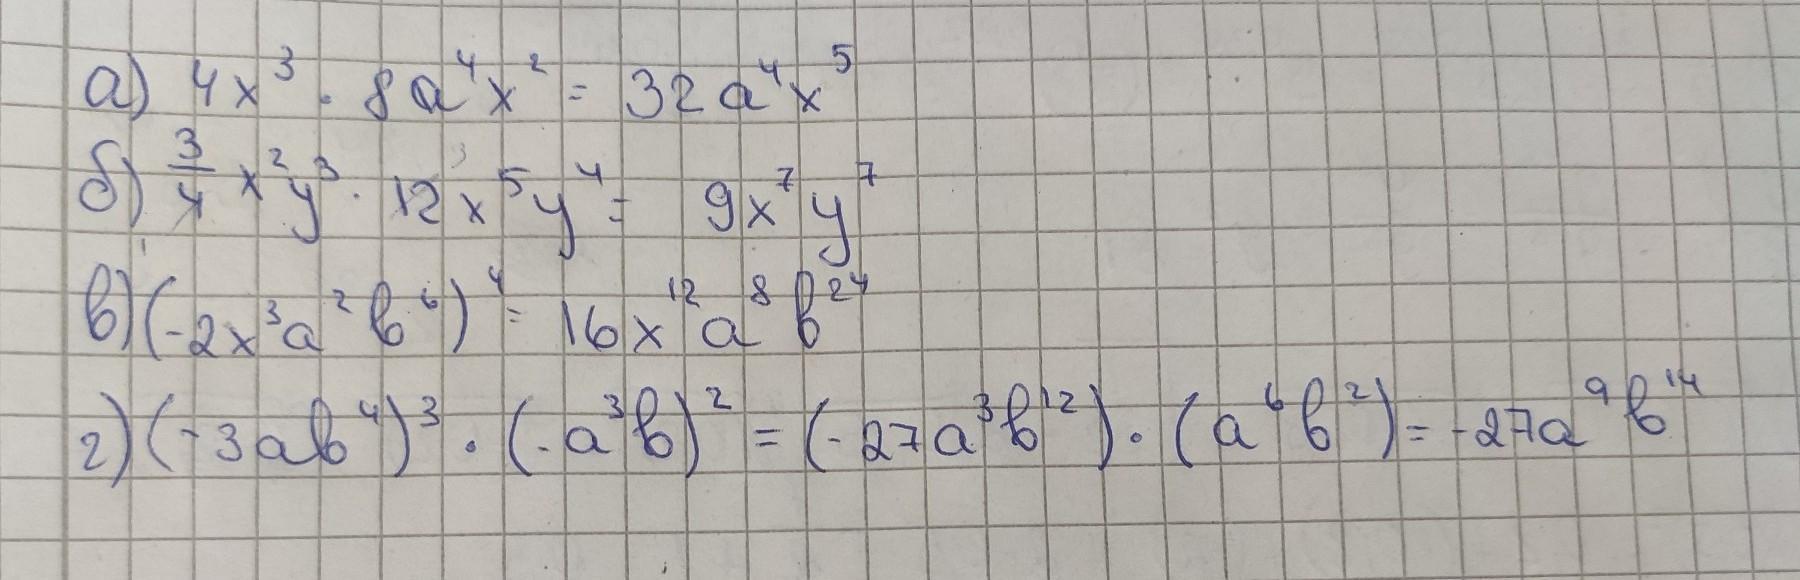 а) 4x³ · 8a⁴x² = 32a⁴x⁵
б) 3/4 x²y³ · 12x⁵y⁴ = 9x⁷y⁷
в) (-2x³a²b⁶)⁴ = 16x¹²a⁸b²⁴
г) (-3ab⁴)³ · (-a³b)² = (-27a³b¹²) · (a⁶b²) = -27a⁹b¹⁴